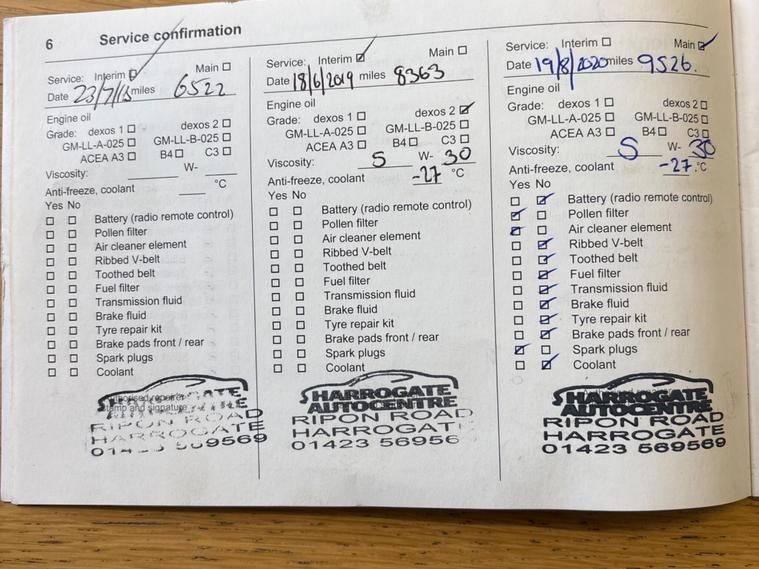 6 Service confirmation
Service: Interim ☑ Main ☐
Date 23/7/ miles 6522
Engine oil
Grade: dexos 1 ☐ dexos 2 ☐
GM-LL-A-025 ☐ GM-LL-B-025 ☐
ACEA A3 ☐ B4 ☐ C3 ☐
Viscosity: W-
Anti-freeze, coolant °C
Yes No
☐ ☐ Battery (radio remote control)
☐ ☐ Pollen filter
☐ ☐ Air cleaner element
☐ ☐ Ribbed V-belt
☐ ☐ Toothed belt
☐ ☐ Fuel filter
☐ ☐ Transmission fluid
☐ ☐ Brake fluid
☐ ☐ Tyre repair kit
☐ ☐ Brake pads front / rear
☐ ☐ Spark plugs
☐ ☐ Coolant
stamp and signature
RIPON ROAD
HARROGATE
Service: Interim ☑ Main ☐
Date 18/6/2019 miles 8363
Engine oil
Grade: dexos 1 ☐ dexos 2 ☑
GM-LL-A-025 ☐ GM-LL-B-025 ☐
ACEA A3 ☐ B4 ☐ C3 ☐
Viscosity: 5 W- 30
Anti-freeze, coolant -27 °C
Yes No
☐ ☐ Battery (radio remote control)
☐ ☐ Pollen filter
☐ ☐ Air cleaner element
☐ ☐ Ribbed V-belt
☐ ☐ Toothed belt
☐ ☐ Fuel filter
☐ ☐ Transmission fluid
☐ ☐ Brake fluid
☐ ☐ Tyre repair kit
☐ ☐ Brake pads front / rear
☐ ☐ Spark plugs
☐ ☐ Coolant
HARROGATE
AUTOCENTRE
RIPON ROAD
HARROGATE
01423 56956
Service: Interim ☐ Main ☑
Date 19/8/2020 miles 9526.
Engine oil
Grade: dexos 1 ☐ dexos 2 ☐
GM-LL-A-025 ☐ GM-LL-B-025 ☐
ACEA A3 ☐ B4 ☐ C3 ☐
Viscosity: 5 W- 30
Anti-freeze, coolant -27 °C
Yes No
☐ ☑ Battery (radio remote control)
☑ ☐ Pollen filter
☑ ☐ Air cleaner element
☐ ☑ Ribbed V-belt
☐ ☑ Toothed belt
☐ ☑ Fuel filter
☐ ☑ Transmission fluid
☐ ☑ Brake fluid
☐ ☑ Tyre repair kit
☐ ☑ Brake pads front / rear
☑ ☐ Spark plugs
☐ ☑ Coolant
HARROGATE
AUTOCENTRE
RIPON ROAD
HARROGATE
01423 569569